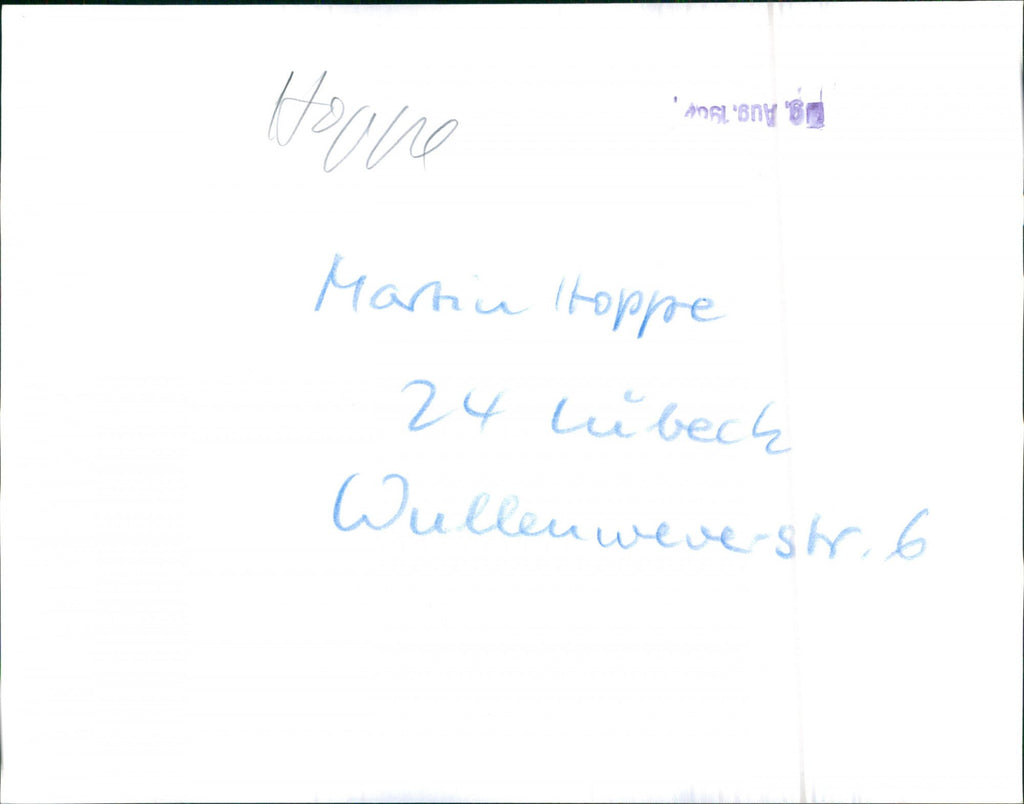 Hoppe
Aug.
Martin Hoppe
24 Lübeck
Wullenweverstr. 6